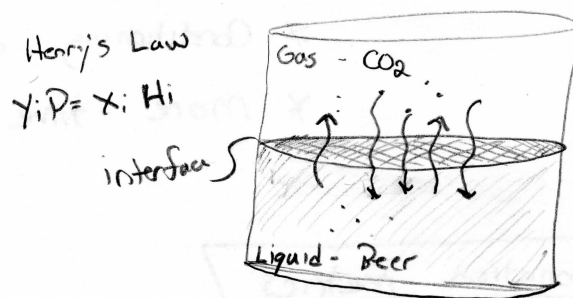 Henry's Law
yiP = xi Hi
interface
Gas - CO2
Liquid - Beer